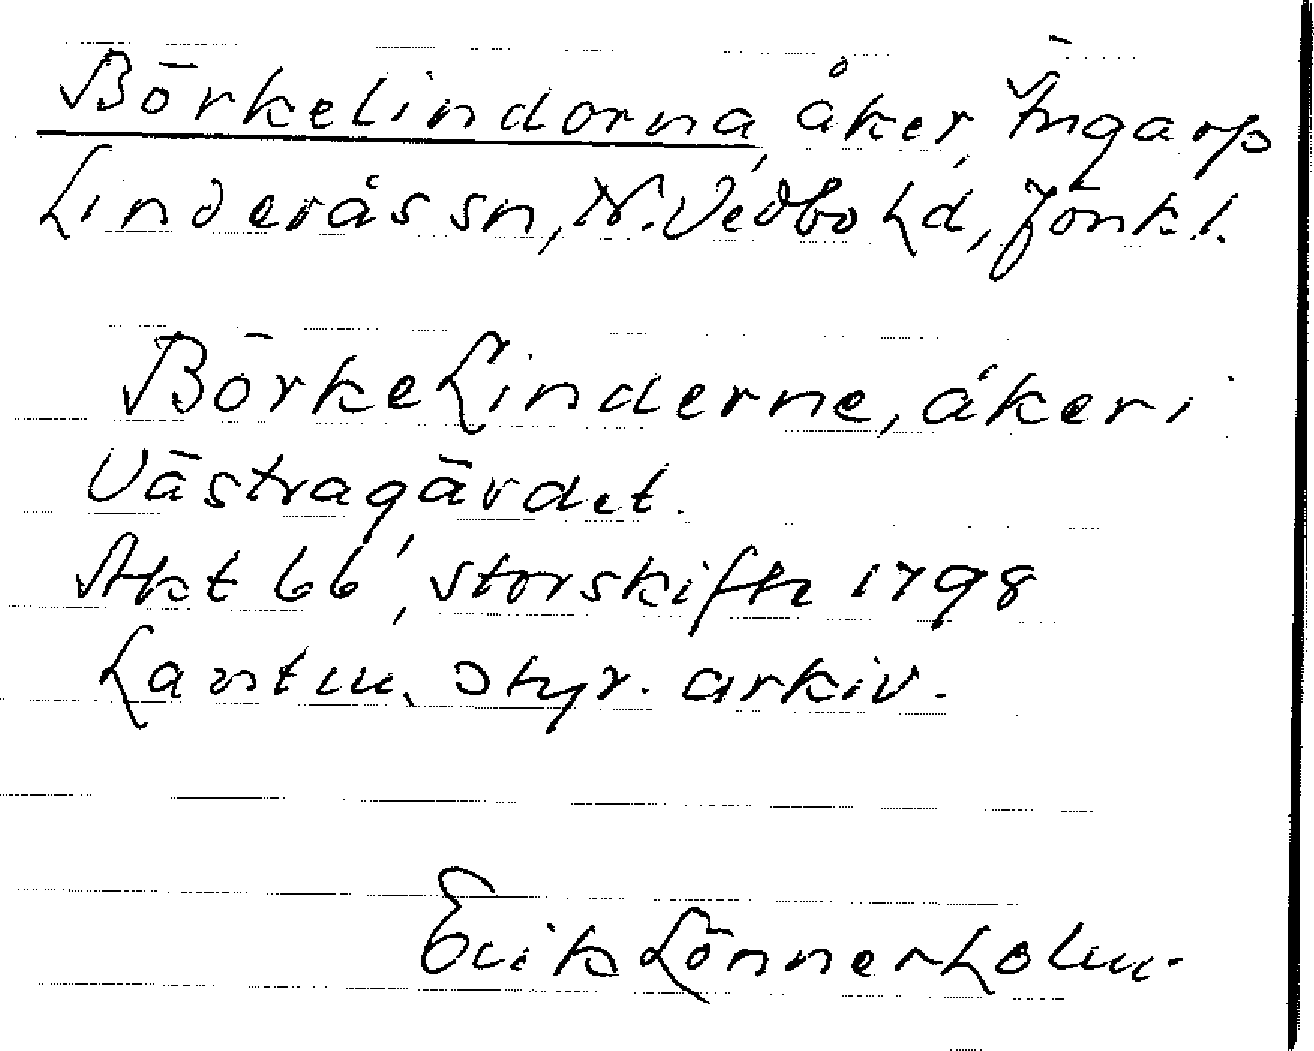 Börkelindorna, åker, Ängarp
Linderås sn, N. Vedbo hd, Jönk. l.
Börke Linderne, åker i
Västragärdet.
Akt 66, storskifte 1798
Lantm. styr. arkiv.
Erik Lönnerholm.